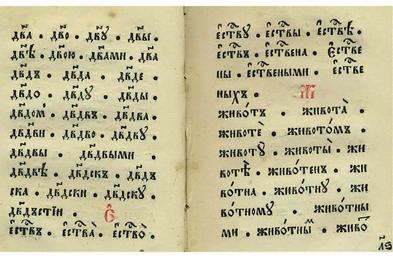 дв҃а . дв҃о . дв҃ꙋ . дв҃ы .
дв҃ѣ . дв҃ою . дв҃ами . дв҃а
дв҃дъ . дв҃да . дв҃де .
дв҃до . дв҃дꙋ . дв҃ды
дв҃дом . дв҃двъ . дв҃два .
дв҃дви . дв҃дво . дв҃двꙋ .
дв҃двы . дв҃двыми .
дв҃двѣ . дв҃дскъ . дв҃дъ
ска . дв҃дски . дв҃дскꙋ
дв҃дъстїи .
Є
єстⷭ҇въ . єстⷭ҇ва̀ . єстⷭ҇во̀ .
єстⷭ҇вꙋ . єстⷭ҇вы . єстⷭ҇вѣ .
єстⷭ҇въ . єстⷭ҇вена . єстⷭ҇ве
ны . єстⷭ҇веными . єстⷭ҇ве
ныхъ .
Ж
живо́тъ . живота̀ .
животѐ . живото́мъ .
животꙋ̀ . животы̀ . жи
вотѣ̀ . живо́тенъ . жи
во́тна . живо́тнꙋ . жи
во́тномꙋ . живо́тны
ми . живо́тны . живо